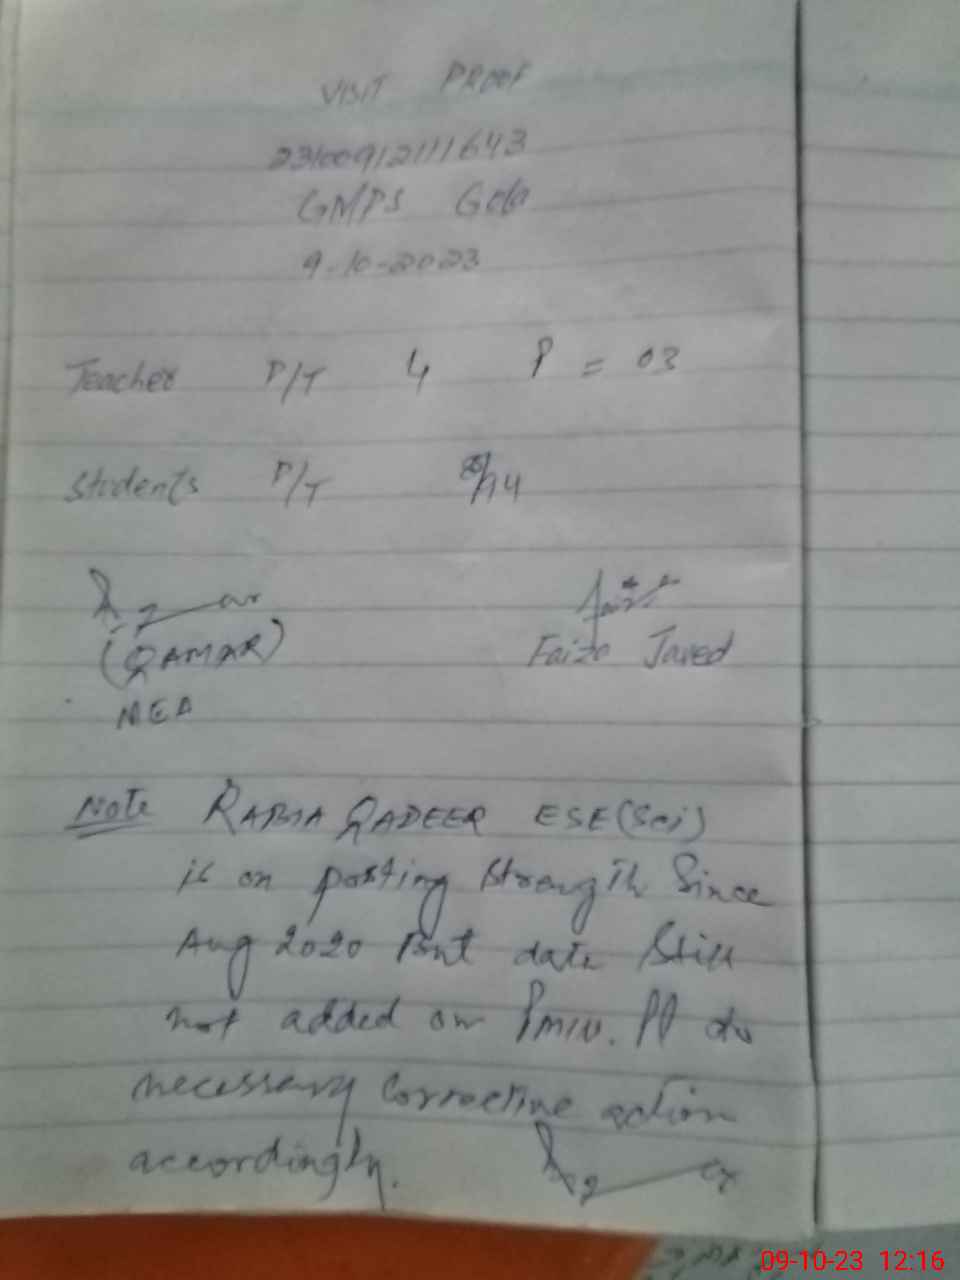 VISIT PROOF
GMPS
9-10-2023
Teacher P/T 4 P = 03
Students P/T /14
(QAMAR)
Faiza Javed
MEA
Note RABIA QADEER ESE(Sci)
is on posting strength Since
Aug 2020 But date Still
not added on
necessary corrective action
accordingly.
09-10-23 12:16